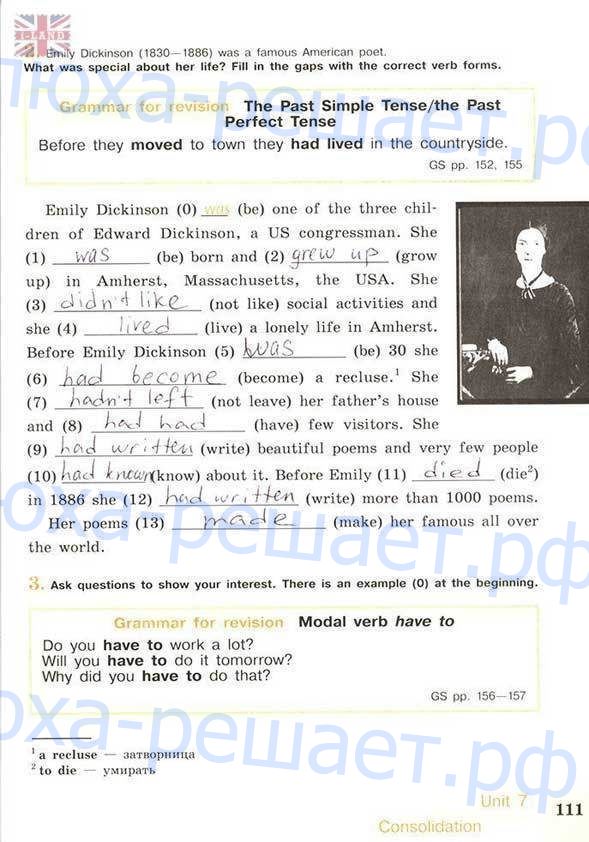 I-LAND
2. Emily Dickinson (1830—1886) was a famous American poet.
What was special about her life? Fill in the gaps with the correct verb forms.
Grammar for revision The Past Simple Tense/the Past
Perfect Tense
Before they moved to town they had lived in the countryside.
GS pp. 152, 155
Emily Dickinson (0) was (be) one of the three chil-
dren of Edward Dickinson, a US congressman. She
(1) was (be) born and (2) grew up (grow
up) in Amherst, Massachusetts, the USA. She
(3) didn't like (not like) social activities and
she (4) lived (live) a lonely life in Amherst.
Before Emily Dickinson (5) was (be) 30 she
(6) had become (become) a recluse.¹ She
(7) hadn't left (not leave) her father's house
and (8) had had (have) few visitors. She
(9) had written (write) beautiful poems and very few people
(10) had known (know) about it. Before Emily (11) died (die²)
in 1886 she (12) had written (write) more than 1000 poems.
Her poems (13) made (make) her famous all over
the world.
3. Ask questions to show your interest. There is an example (0) at the beginning.
Grammar for revision Modal verb have to
Do you have to work a lot?
Will you have to do it tomorrow?
Why did you have to do that?
GS pp. 156—157
¹ a recluse — затворница
² to die — умирать
Unit 7
111
Consolidation
люха-решает.рф
люха-решает.рф
люха-решает.рф